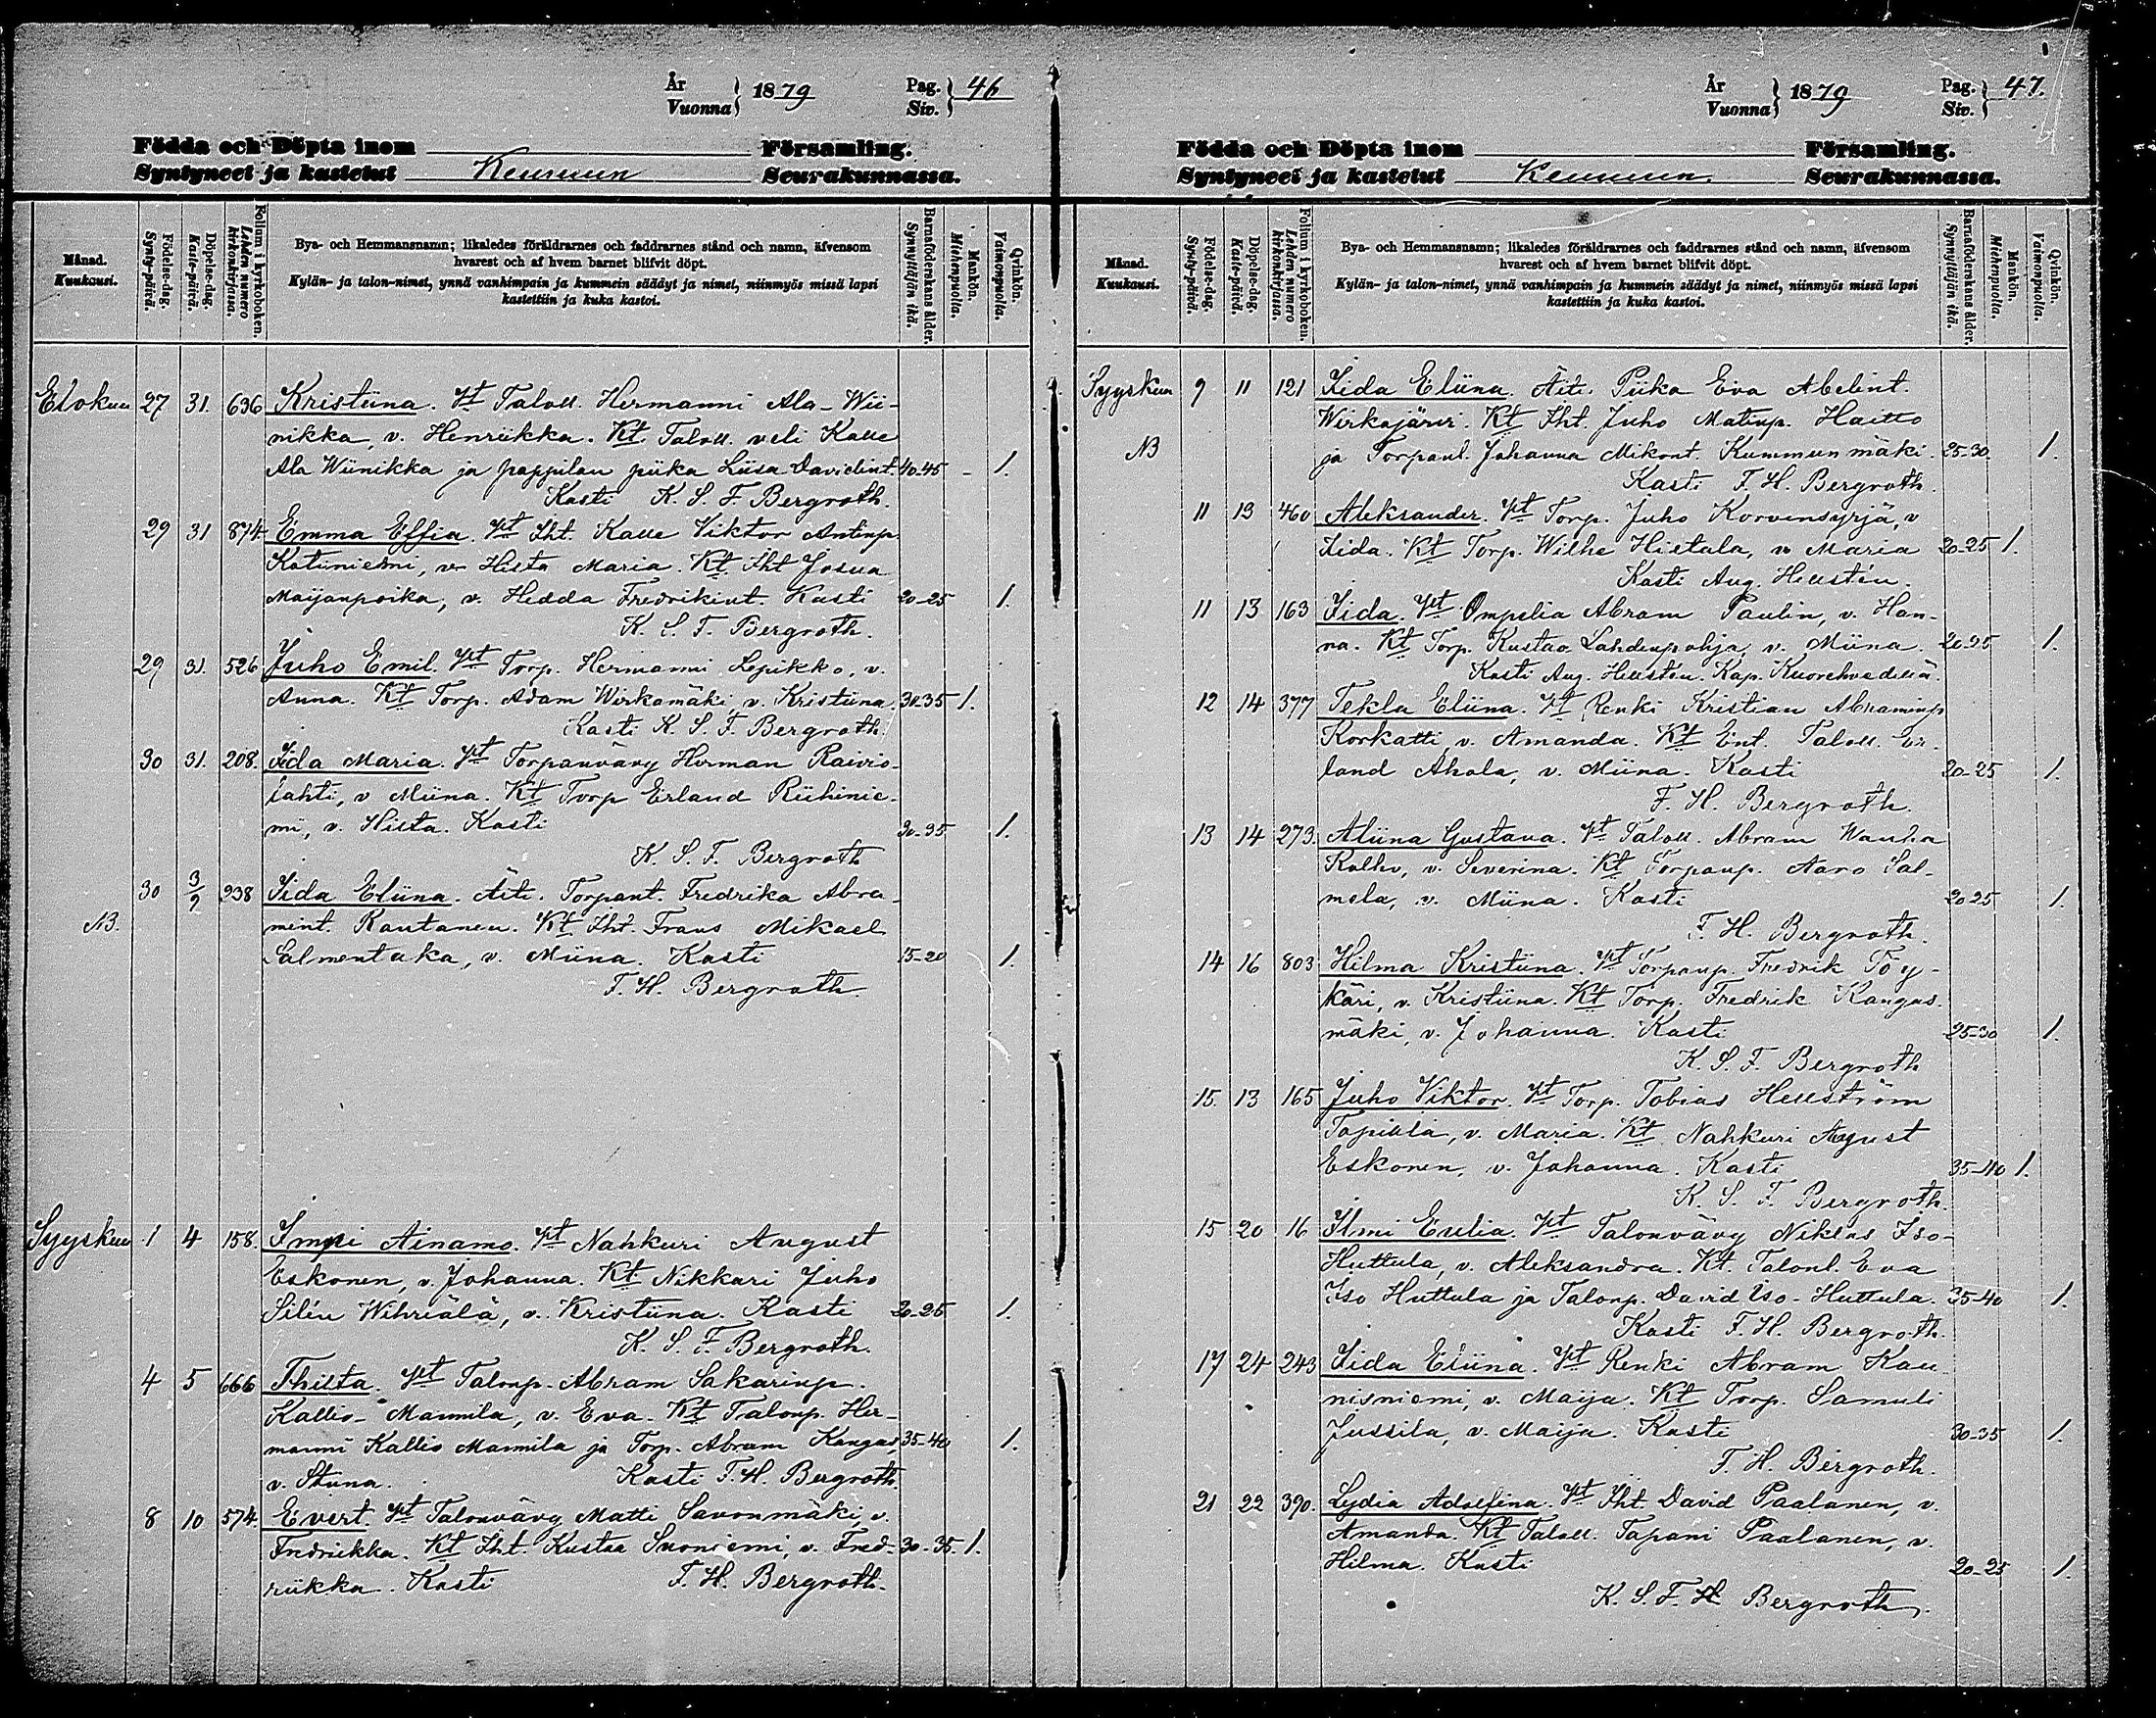 År
Vuonna } 1879 Pag.
Siv. } 46
Födda och Döpta inom Församling.
Syntyneet ja kastetut Keuruun Seurakunnassa.
Månad.
Kuukausi.
Födelse-dag.
Synty-päivä.
Döpelse-dag.
Kaste-päivä.
Folium i kyrkoboken.
Lehden numero kirkonkirjassa.
Bya- och Hemmansnamn; likaledes föräldrarnes och faddrarnes stånd och namn, äfvensom
hvarest och af hvem barnet blifvit döpt.
Kylän- ja talon-nimet, ynnä vanhimpain ja kummein säädyt ja nimet, niinmyös missä lapsi
kastettiin ja kuka kastoi.
Barnaföderskans ålder.
Synnyttäjän ikä.
Mankön.
Miehenpuolia.
Qvinkön.
Vaimonpuolia.
Elokuu 27 31. 636 Kristiina. Vt Taloll. Hermanni Ala-Wii-
nikka, v. Henriikka. Kt. Taloll. veli Kalle
Ala Wiinikka ja pappilan piika Liisa Davidint. 40-45 - 1.
Kasti K. S. F. Bergroth.
29 31 874. Emma Effia. Vt Iht. Kalle Viktor Antinp.
Katiniemi, v. Hista Maria. Kt. Iht Josua
Maijanpoika, v. Hedda Fredrikint. Kasti 20-25 1.
K. S. F. Bergroth.
29 31. 526 Juho Emil. Vt Torp. Hermanni Lepikko, v.
Anna. Kt Torp. Adam Wirkamäki, v. Kristiina. 30-35 1.
Kasti K. S. F. Bergroth.
30 31. 208. Iida Maria. Vt Torpanvävy Herman Raivio-
lahti, v Miina. Kt Torp Erland Riihinie-
mi, v. Hista. Kasti 30-35 1.
K. S. F. Bergroth
30 3/9 238 Iida Eliina. Äiti. Torpant. Fredrika Abra-
NB. mint. Rautanen. Kt Iht. Frans Mikael
Salmentaka, v. Miina. Kasti 15-20 1.
F. H. Bergroth.
Syyskuu 1 4 158. Impi Ainamo. Vt Nahkuri August
Eskonen, v. Johanna. Kt. Nikkari Juho
Silén Wihriälä, v. Kristiina. Kasti 20-25 1.
K. S. F. Bergroth.
4 5 666 Thilta. Vt Talonp. Abram Sakarinp.
Kallio-Mannila, v. Eva. Kt Talonp. Her-
manni Kallio Mannila ja Torp. Abram Kangas, 35-40 1.
v. Stiina. Kasti F. H. Bergroth.
8 10 574. Evert. Vt Talonvävy Matti Savonmäki, v.
Fredriikka. Kt Iht. Kustaa Suoniemi, v. Fred- 30-35. 1.
riikka. Kasti F. H. Bergroth.
År
Vuonna } 1879 Pag.
Siv. } 47.
Födda och Döpta inom Församling.
Syntyneet ja kastetut Keuruun Seurakunnassa.
Månad.
Kuukausi.
Födelse-dag.
Synty-päivä.
Döpelse-dag.
Kaste-päivä.
Folium i kyrkoboken.
Lehden numero kirkonkirjassa.
Bya- och Hemmansnamn; likaledes föräldrarnes och faddrarnes stånd och namn, äfvensom
hvarest och af hvem barnet blifvit döpt.
Kylän- ja talon-nimet, ynnä vanhimpain ja kummein säädyt ja nimet, niinmyös missä lapsi
kastettiin ja kuka kastoi.
Barnaföderskans ålder.
Synnyttäjän ikä.
Mankön.
Miehenpuolia.
Qvinkön.
Vaimonpuolia.
Syyskuu 9 11 121 Iida Eliina. Äiti. Piika Eva Abelint.
Wirkajärvi. Kt Iht. Juho Matinp. Haitto
NB ja Torpanl. Johanna Mikont. Kummunmäki. 25-30 1.
Kasti F. H. Bergroth.
11 13 460 Aleksander. Vt Torp. Juho Korvensyrjä, v
Iida. Kt Torp. Wilhe Hietala, v. Maria 20-25 1.
Kasti Aug. Hellstén.
11 13 163 Iida. Vt Ompelia Abram Paulin, v. Han-
na. Kt Torp. Kustaa Lahdenpohja, v. Miina. 20-25 1.
Kasti Aug. Hellstén. Kap. Kuorehvedellä.
12 14 377 Tekla Eliina. Vt Renki Kristian Abraminp
Korkatti, v. Amanda. Kt Ent. Taloll. Er-
land Ahola, v. Miina. Kasti 20-25 1.
F. H. Bergroth.
13 14 273. Aliina Gustava. Vt Taloll. Abram Wanha
Kalho, v. Severina. Kt Torpanp. Aaro Sal-
mela, v. Miina. Kasti 20-25 1.
F. H. Bergroth.
14 16 803 Hilma Kristiina. Vt Torpanp. Fredrik Töy-
käri, v. Kristiina. Kt Torp. Fredrik Kangas-
mäki, v. Johanna. Kasti 25-30 1.
K. S. F. Bergroth
15. 13 165 Juho Viktor. Vt Torp. Tobias Hellström
Tapiala, v. Maria. Kt. Nahkuri August
Eskonen, v. Johanna. Kasti 35-40 1.
K. S. F. Bergroth.
15 20 16 Ilmi Eulia. Vt Talonvävy Niklas Iso-
Huttula, v. Aleksandra. Kt. Talonl. Eva
Iso Huttula ja Talonp. David Iso-Huttula. 35-40 1.
Kasti F. H. Bergroth.
17 24 243 Iida Eliina. Vt Renki Abram Kau-
nisniemi, v. Maija. Kt Torp. Samuli
Jussila, v. Maija. Kasti 30-35 1.
F. H. Bergroth.
21 22 390. Lydia Adolfina. Vt Iht. David Paalanen, v.
Amanda. Kt Taloll. Tapani Paalanen, v.
Hilma. Kasti 20-25 1.
K. S. F. H Bergroth.